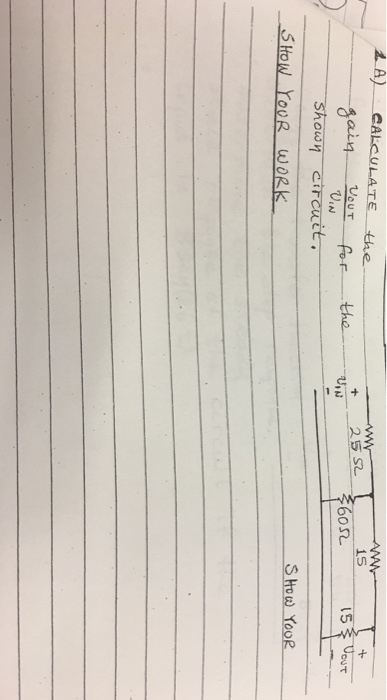 1 A) CALCULATE the
gain VOUT/VIN for the
shown circuit.
SHOW YOUR WORK
+ VIN -
25 Ω
60 Ω
15
15
+ VOUT -
SHOW YOUR